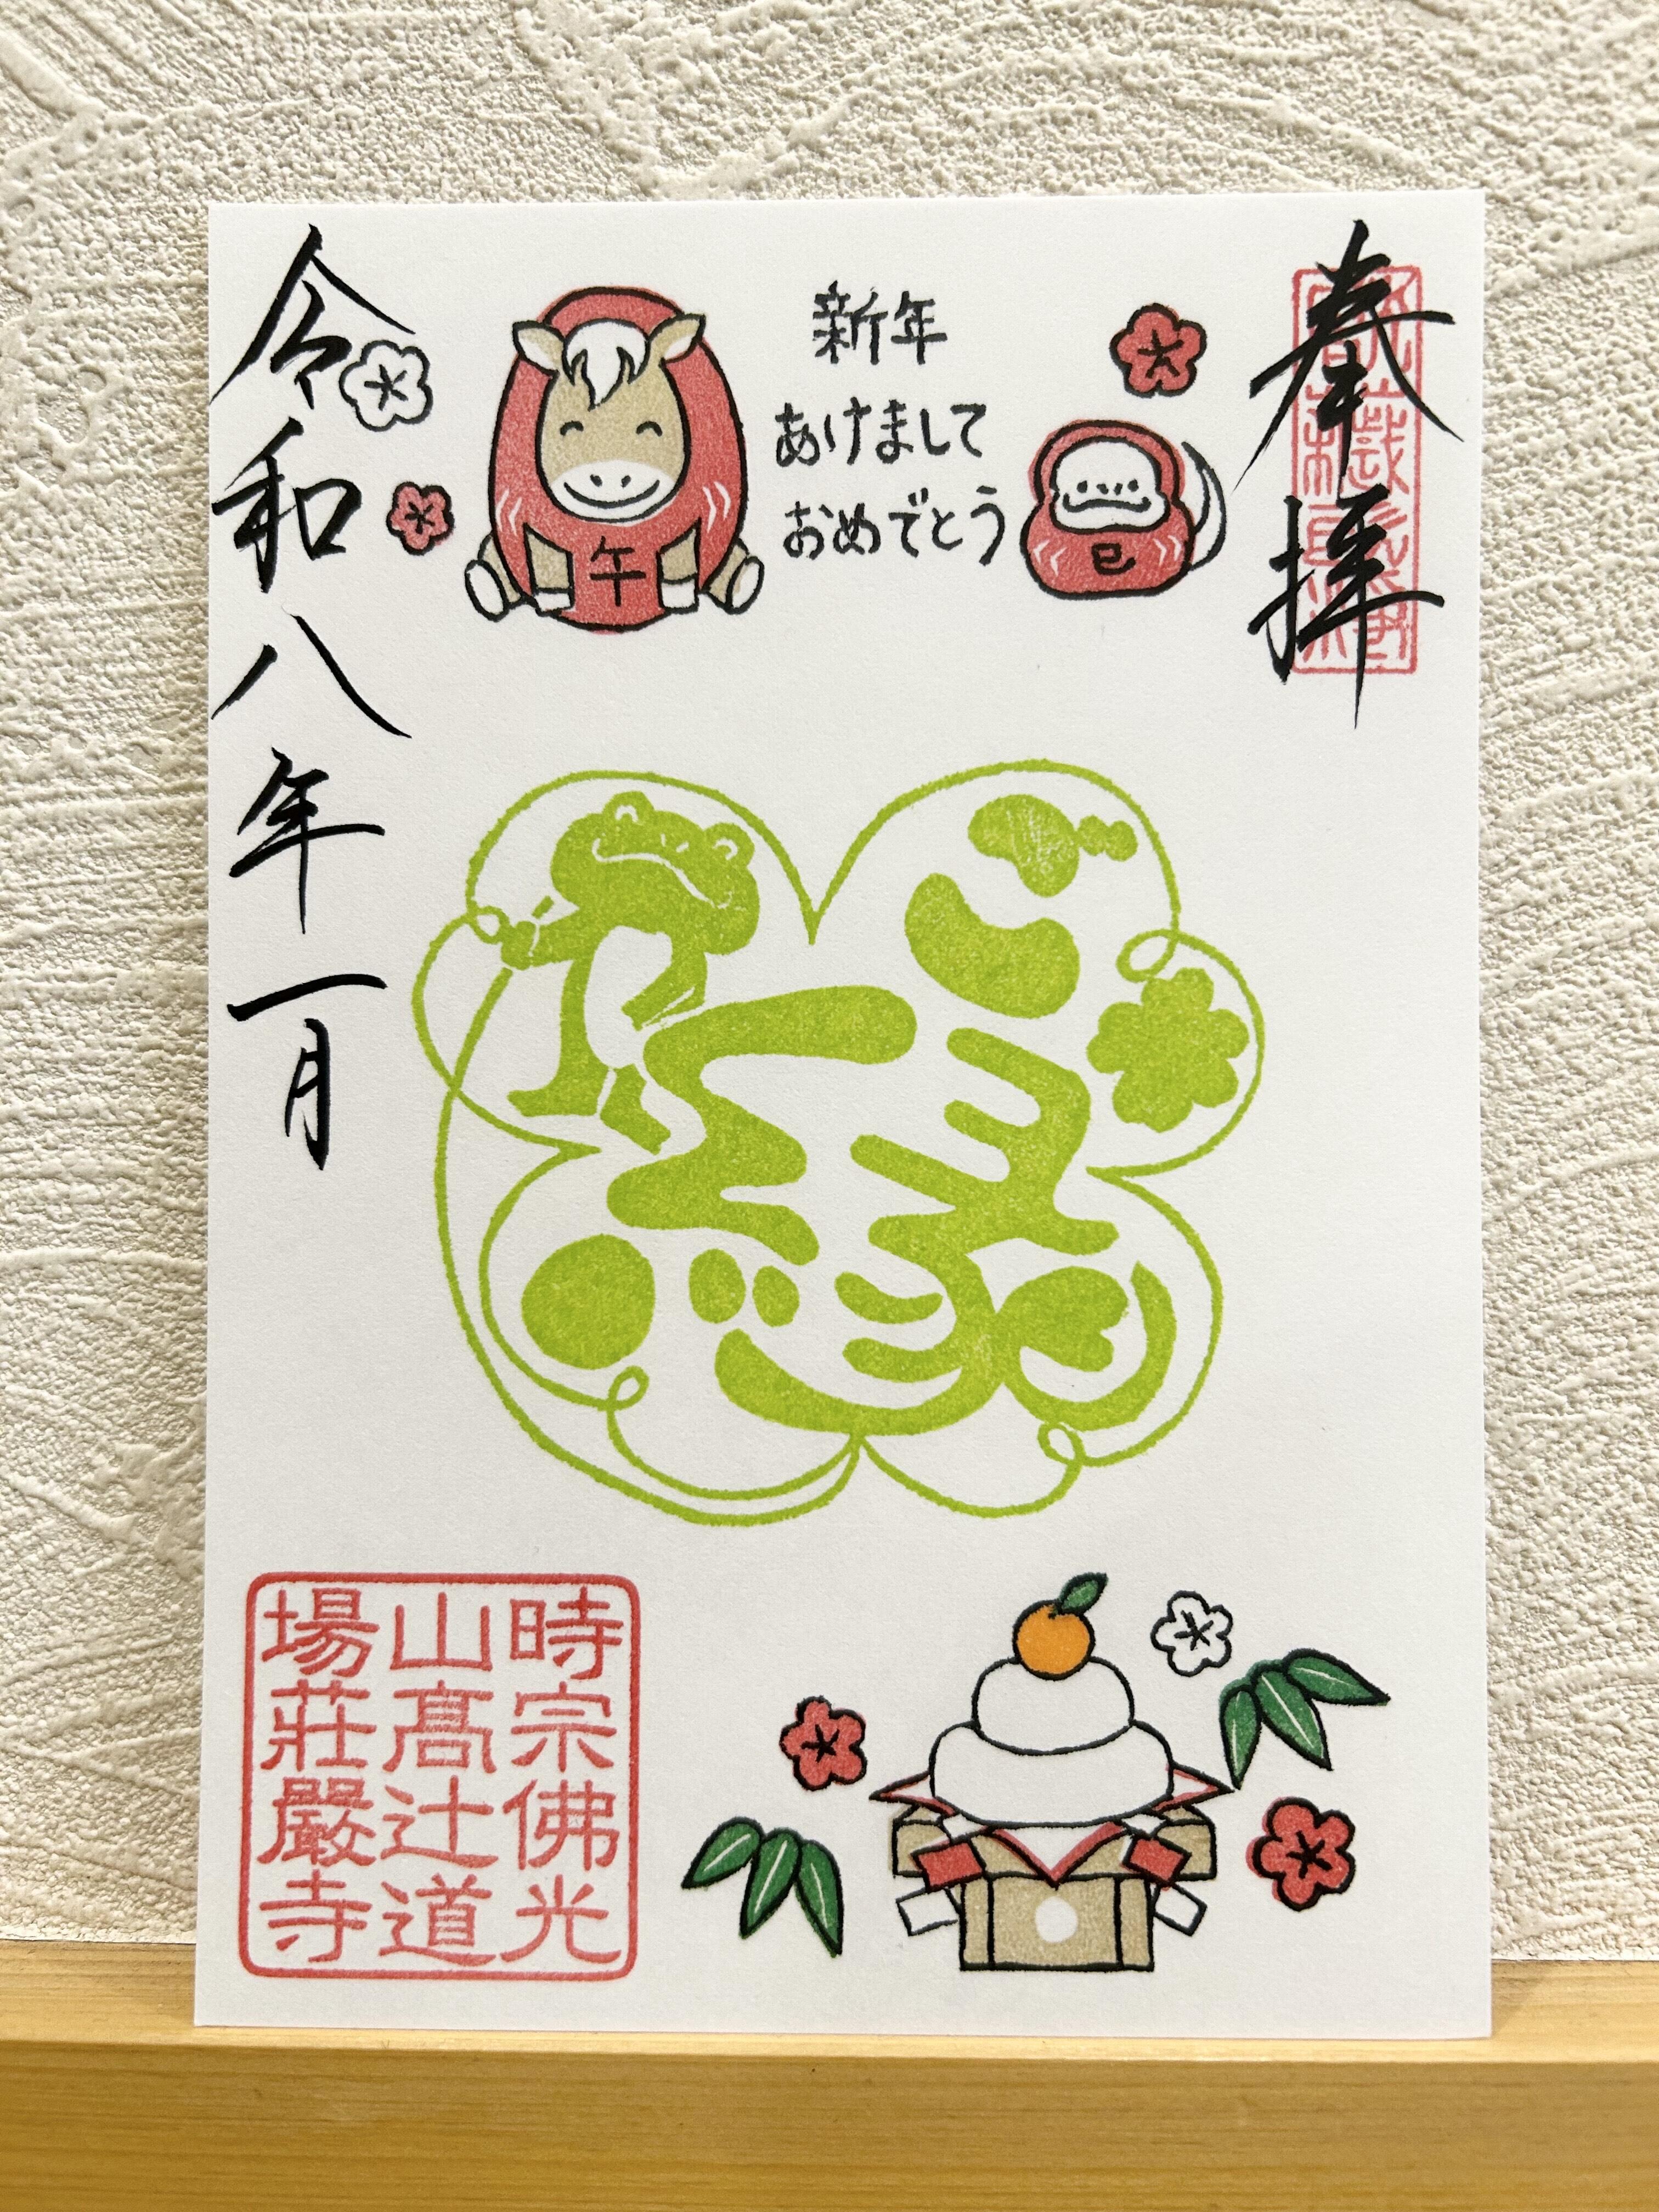 奉拝
新年
あけまして
おめでとう
午
巳
令和八年一月
時宗佛光
山髙辻道
場莊嚴寺